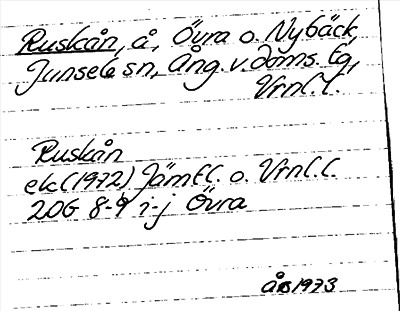 Ruskån, å, Övra o. Nybäck,
Junsele sn, Ång. v. doms. tg,
Vrnl. l.
Ruskån
ek (1972) Jämtl. o. Vrnl. l.
20G 8-9 i-j Övra
ÅB 1973